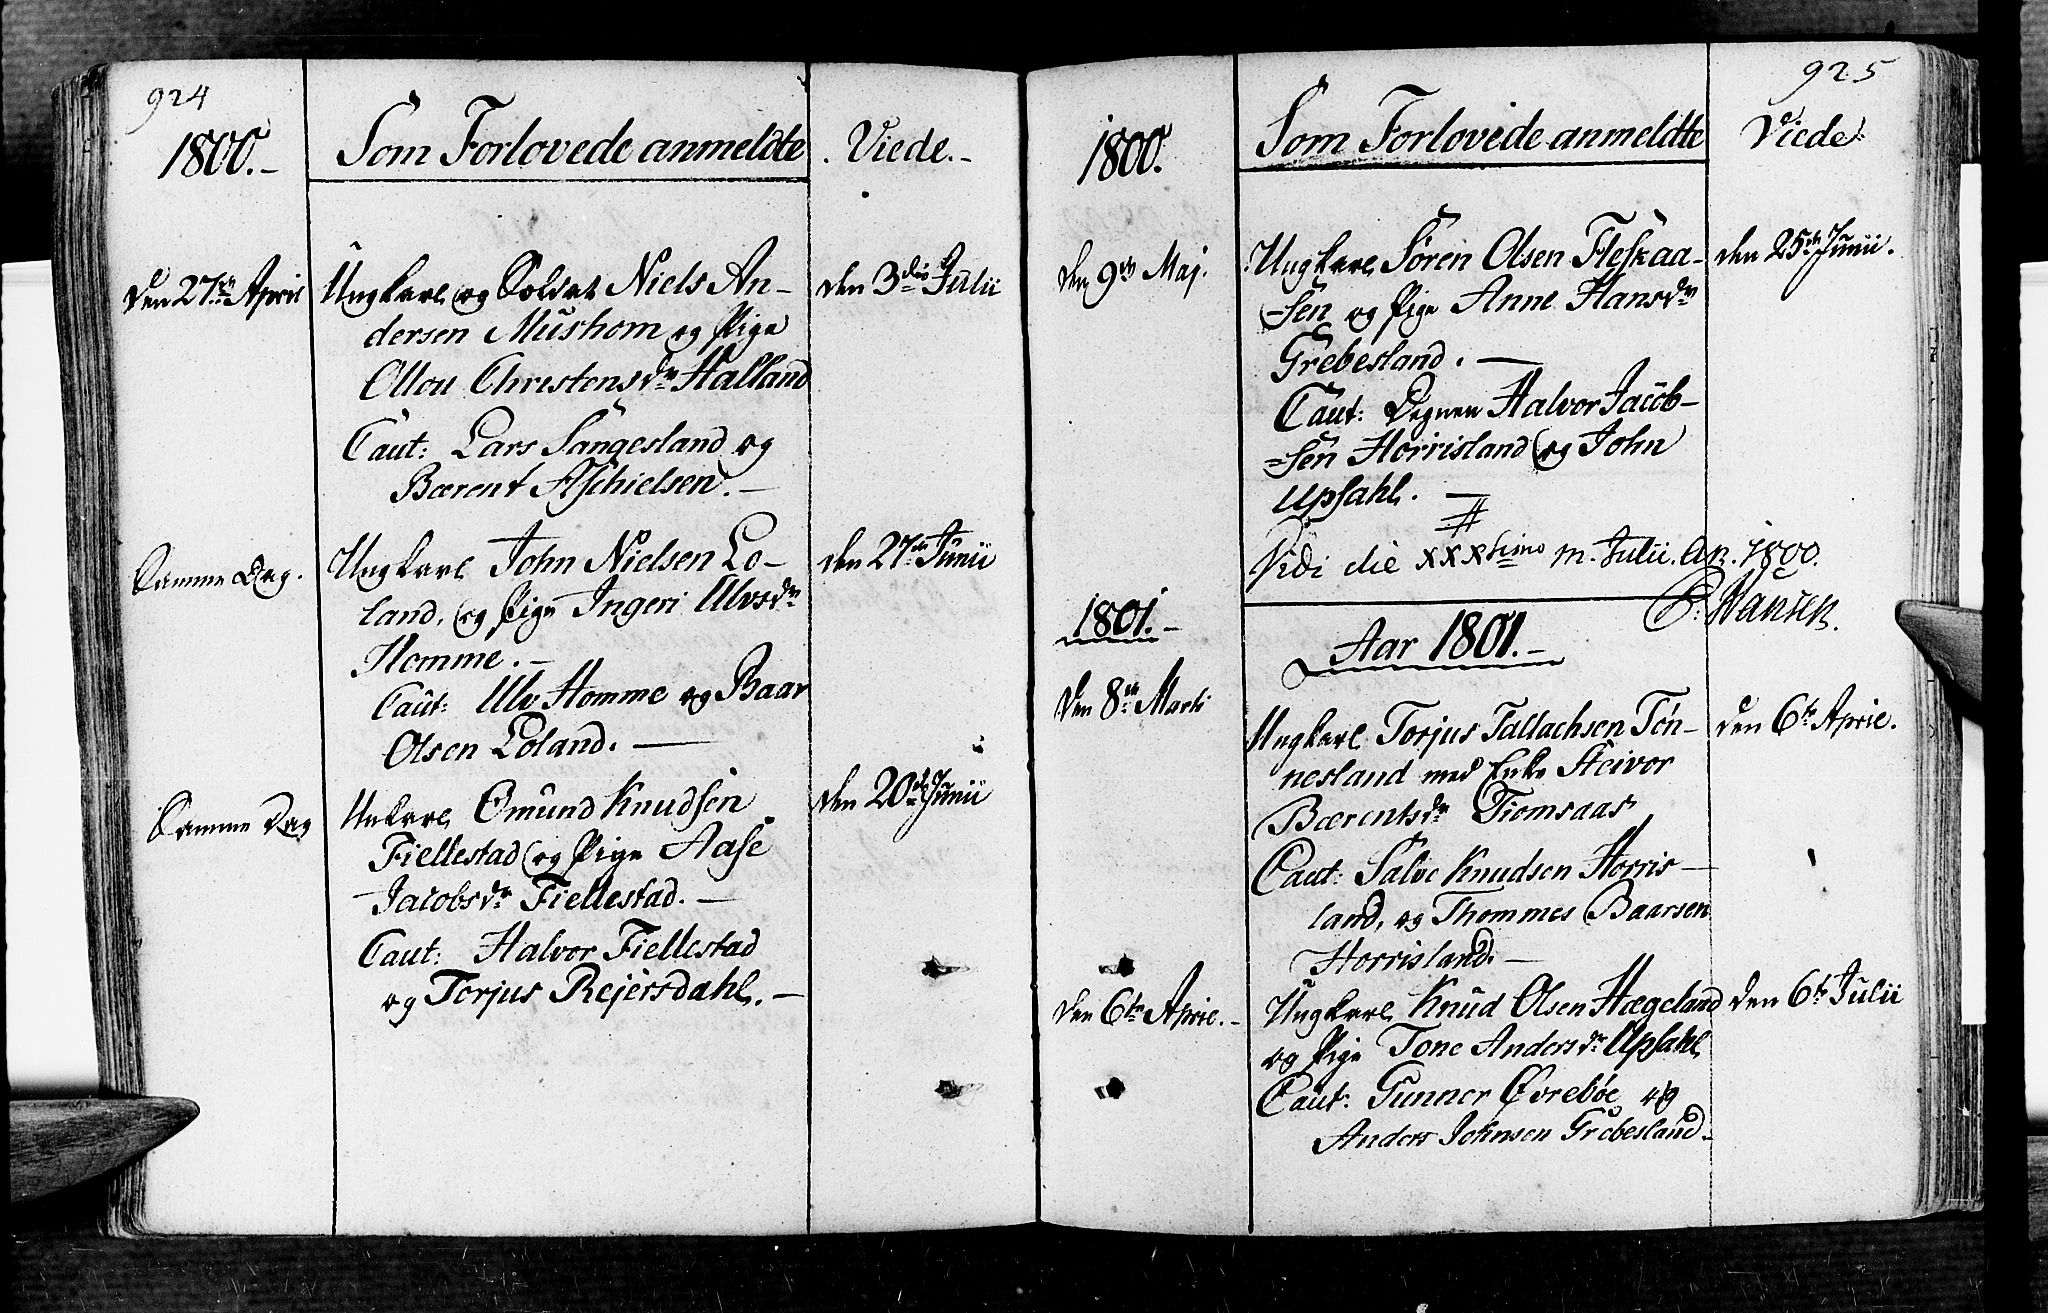 924
1800.- Som Forlovede anmeldte Viede.-
Den 27de April Ungkarl og Soldat Niels An-
dersen Mushom og Pige
Ollou Christensdr Halland
Caut: Lars Sangesland og
Bærent Aschielsen.-
den 3die Julii
Samme Dag. Ungkarl John Nielsen Lo-
land, og Pige Ingeri Ulvsdr
Homme.-
Caut: Ulv Homme og Baar
Olsen Loland.-
den 27de Junii
Samme Dag Unkarl Omund Knudsen
Fiellestad og Pige Aase
Jacobsdr Fiellestad.-
Caut: Halvor Fiellestad
og Torjus Rejersdahl.-
den 20de Junii
925
1800. Som Forlovede anmeldte Viede.
Den 9de Maj. Ungkarl Søren Olsen Fleskaa-
sen og Pige Anne Hansdr
Grebesland.-
Caut: Degnen Halvor Jacob-
=sen Horrisland og John
Upsahl.-
den 25de Junii.
Vidi die XXXsimo m. Julii. An. 1800.
P: Hansen.
1801.- Aar 1801.-
Den 8de Marti Ungkarl Torjus Tallachsen Tøn-
nesland med Enke Steivor
Bærentsdr Tiomsaas
Caut: Salve Knudsen Horris-
land, og Thommes Baarsen
Horrisland.-
den 6te Aprie.
Den 6te Aprie.- Ungkarl Knud Olsen Hægeland
og Pige Tone Andersdr Upsahl
Caut: Gunner Øvrebøe og
Anders Johnsen Grebesland.
den 6te Julii